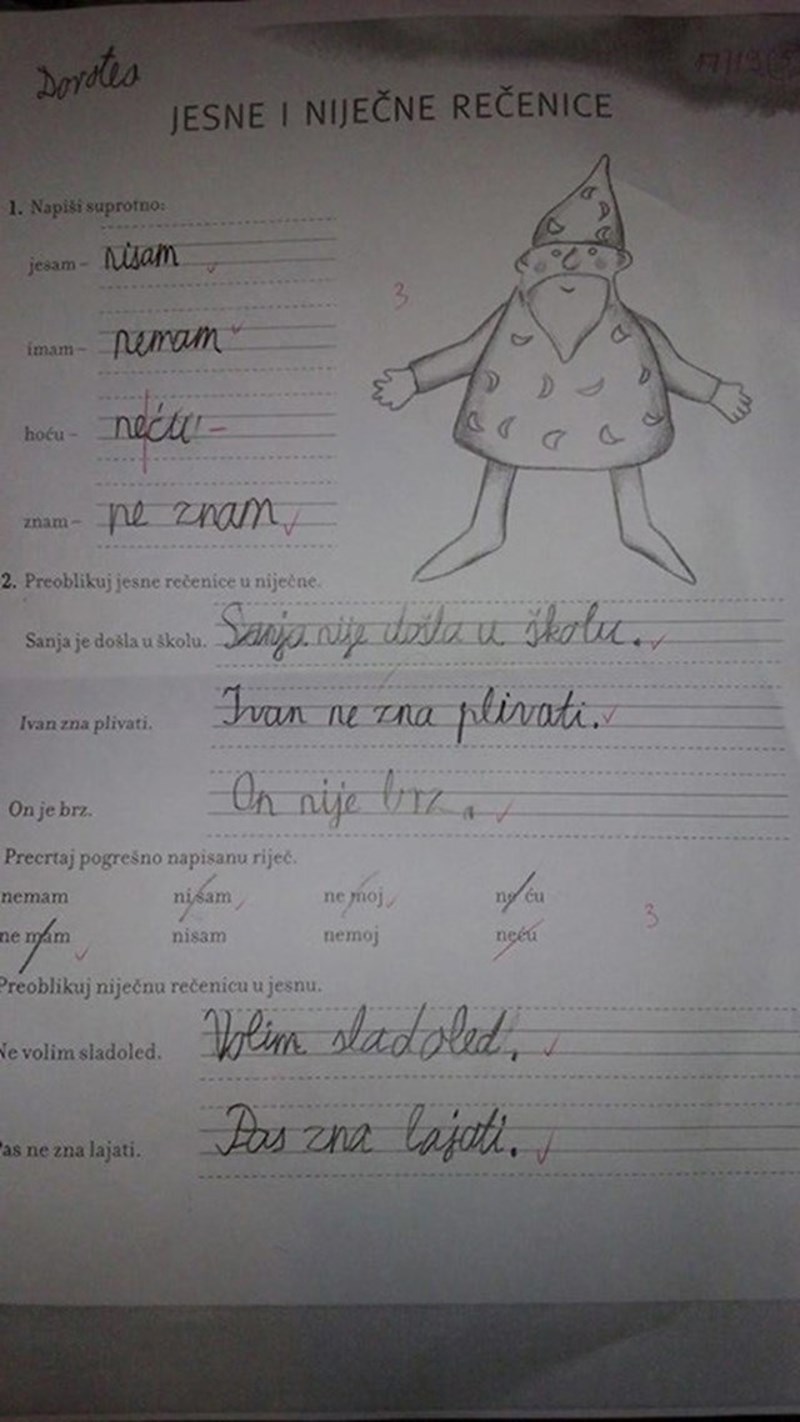 Dorotea
JESNE I NIJEČNE REČENICE
1. Napiši suprotno:
jesam – nisam
3
imam – nemam
hoću – neću
znam – ne znam
2. Preoblikuj jesne rečenice u niječne.
Sanja je došla u školu. Sanja nije došla u školu.
Ivan zna plivati. Ivan ne zna plivati.
On je brz. On nije brz.
Precrtaj pogrešno napisanu riječ.
nemam ni sam ne moj ne ću
3
ne mam nisam nemoj neću
Preoblikuj niječnu rečenicu u jesnu.
Ne volim sladoled. Volim sladoled.
as ne zna lajati. Pas zna lajati.